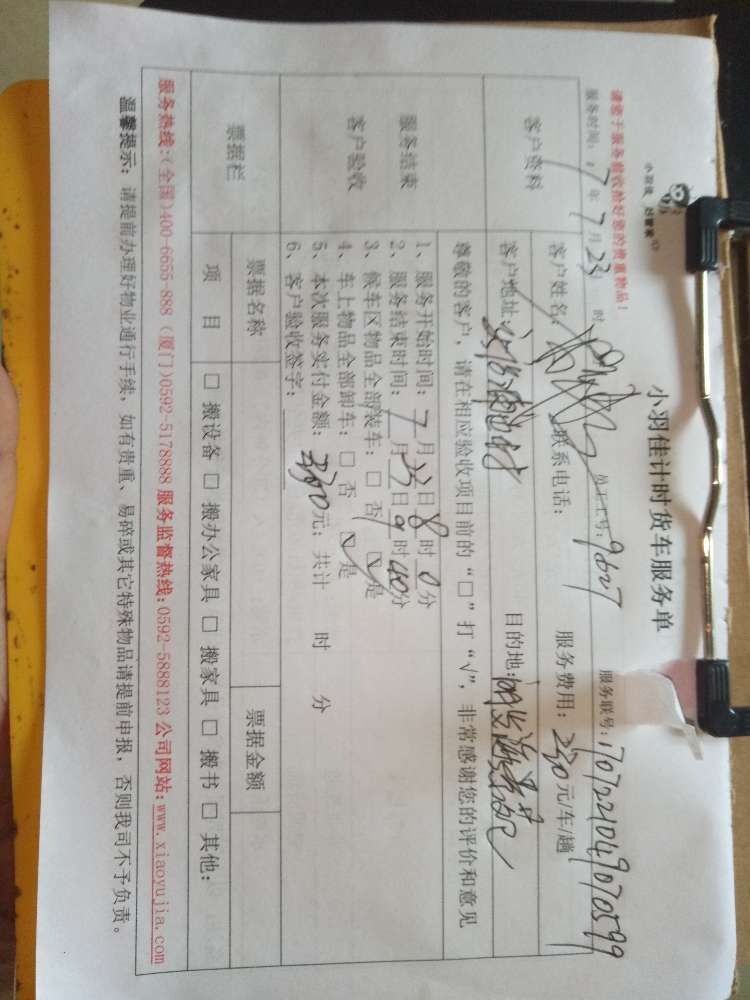 小羽佳 好管家
小羽佳计时货车服务单
请您于服务前收拾好您的贵重物品！
服务时间：17年7月23日 时 员工工号：9627 服务联号：1707221049070599
客户资料
客户姓名： 联系电话： 服务费用：230元/车/趟
客户地址： 目的地：
尊敬的客户，请在相应验收项目前的“□”打“√”，非常感谢您的评价和意见
服务结束
客户验收
1、服务开始时间：7月23日8时0分
2、服务结束时间：7月23日9时40分
3、候车区物品全部装车：□ 否 ☑ 是
4、车上物品全部卸车：□ 否 ☑ 是
5、本次服务实付金额：230元；共计 时 分
6、客户验收签字：
票据栏
票据名称 票据金额
项 目 □ 搬设备 □ 搬办公家具 □ 搬家具 □ 搬书 □ 其他：
服务热线：(全国)400-6655-888 (厦门)0592-5178888 服务监督热线：0592-5888123 公司网站：www.xiaoyujia.com
温馨提示：请提前办理好物业通行手续，如有贵重、易碎或其它特殊物品请提前申报，否则我司不予负责。